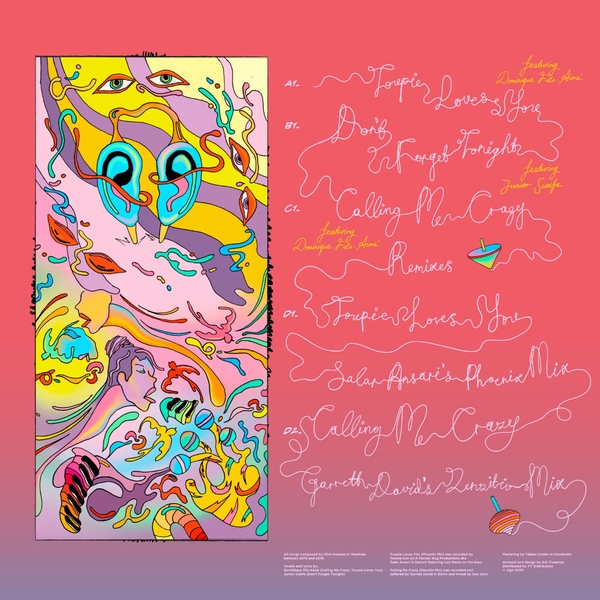 featuring
Dominique Fils-Aimé
A1.
Toupie Loves You
B1.
Don't
Forget Tonight
featuring
Junior Scaife
C1.
Calling Me Crazy
featuring
Dominique Fils-Aimé
Remixes
D1.
Toupie Loves You
Salar Ansari's Phoenix Mix
D2.
Calling Me Crazy
Garrett David's Zenzitiv Mix
All songs composed by
in Montreal,
between 2016 and 2019.
Vocals and lyrics by:
Dominique Fils-Aimé (Calling Me Crazy, Toupie Loves You)
Junior Scaife (Don't Forget Tonight)
Toupie Loves You (Phoenix Mix) was recorded by
Calling Me Crazy (Zenzitiv Mix) was recorded and
Garrett David in Berlin and mixed by
Mastering by
in Stockholm
Artwork and design by
Distributed by